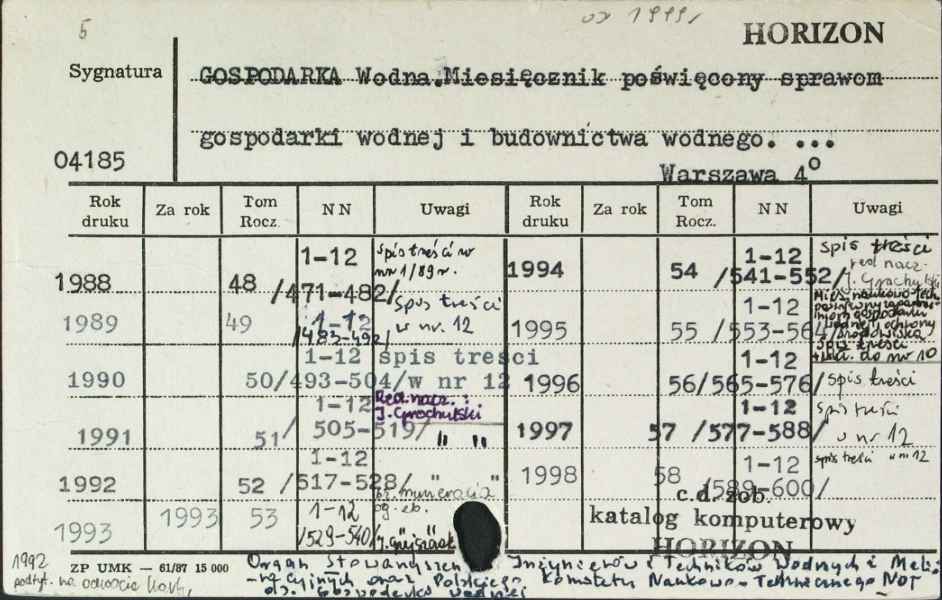 5
HORIZON
Sygnatura
GOSPODARKA Wodna.Miesięcznik poświęcony sprawom
gospodarki wodnej i budownictwa wodnego. ...
04185
Warszawa 4°
Rok druku Za rok Tom Rocz. NN Uwagi Rok druku Za rok Tom Rocz. NN Uwagi
1988 48 1-12 /471-482/ spis treści w nr 1/89 r.
1989 49 1-12 /483-492/ spis treści w nr. 12
1990 50 1-12 /493-504/ spis treści w nr 12
1991 51 1-12 /505-519/ Red. nacz.: J. Grochulski " "
1992 52 1-12 /517-528/ " "
1993 1993 53 1-12 /529-540/
1994 54 1-12 /541-552/ spis treści red nacz. J. Grochulski
1995 55 1-12 /553-564/ Mies. naukowo-tech. gospodarki wodnej i ochrony środowiska spis treści do nr 10
1996 56 1-12 /565-576/ spis treści
1997 57 1-12 /577-588/ spis treści w nr 12
1998 58 1-12 /589-600/ spis treści w nr 12
c.d. zob.
katalog komputerowy
HORIZON
1992
ZP UMK — 61/87 15 000
Organ Stowarzyszenia Inżynierów i Techników Wodnych i Meli-
-racyjnych oraz Polskiego Komitetu Naukowo-Technicznego NOT
ds. Gospodarki Wodnej